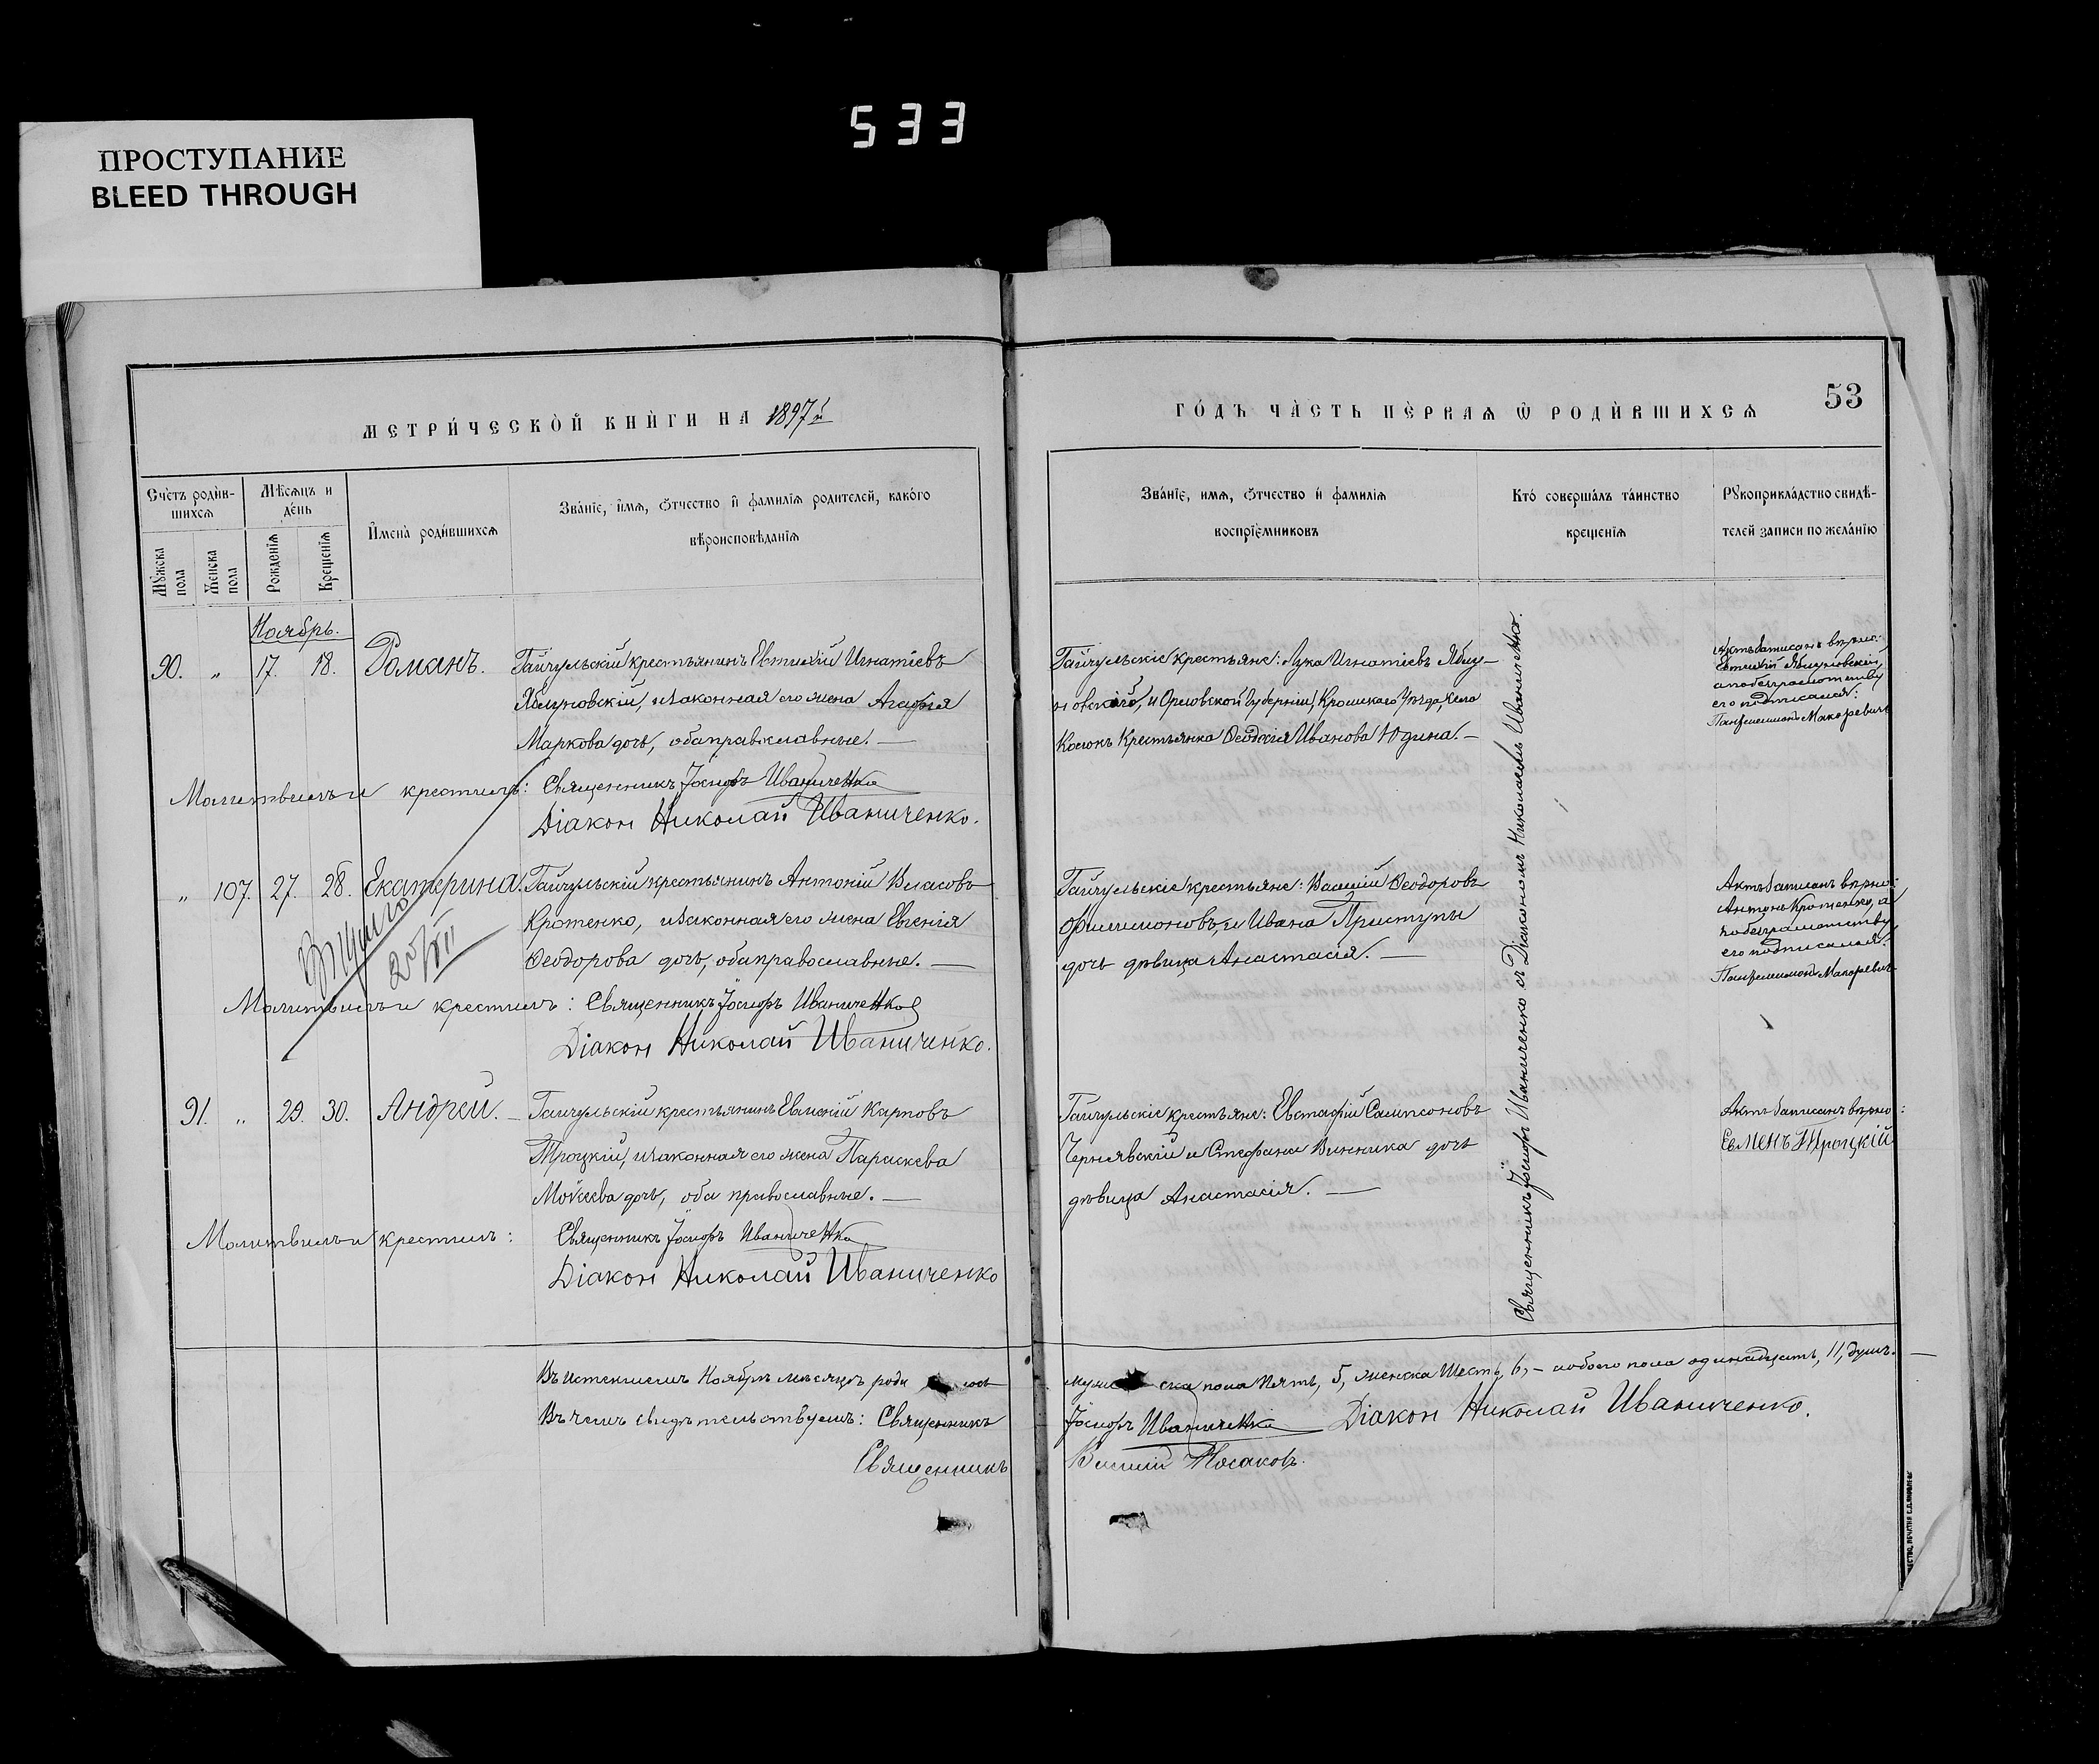 533
ПРОСТУПАНИЕ
BLEED THROUGH
МЕТРИ́ЧЕСКОЙ КНИ́ГИ НА 1897й
ГО́ДЪ ЧА́СТЬ ПЕ́РВАѦ Ѿ РОДИ́ВШИХСѦ
53
Сче́тъ роди́в-
шихсѧ
Мꙋ́жеска пола
Же́нска пола
Мѣ́сѧцъ и де́нь
Рожденїѧ
Крещенїѧ
И҆мена̀ роди́вшихсѧ
Зва́нїе, и҆́мѧ, ѻ҆́тчество и҆ фамилїѧ родителей, како́го
вѣроисповѣ́данїѧ
Зва́нїе, имѧ, ѻ҆́тчество и҆ фамилїѧ
воспрїе́мниковъ
Кто́ соверша́лъ та́инство
крещенїѧ
Рꙋкоприкла́дство свидѣ́-
телей записи по жела́нїю
Ноябрь.
90. „ 17. 18. Романъ.
Гайчульскій крестьянинъ Евтихій Игнатіевъ
Яблуновскій, и законная его жена Агафія
Маркова дочь, оба православные. —
Молитвилъ и крестилъ: Священникъ Іосифъ Иваниченко
Діакон Николай Иваниченко.
Гайчульскіе крестьяне: Лука Игнатіевъ Яблу-
новскій, и Орловской губерніи, Кромскаго Уѣзда, села
Крестьянка Ѳеодосія Иванова Юдина. —
Актъ записанъ вѣрно:
Евтихій Яблуновскій,
а по безграмотству
его подписался:
Пантелеимонъ Макаревичъ
„ 107. 27. 28. Екатерина.
Гайчульскій крестьянинъ Антоній Власовъ
Кротенко, и законная его жена Евгенія
Ѳеодорова дочь, оба православные. —
20/VII
Молитвилъ и крестилъ: Священникъ Іосифъ Иваниченко
Діакон Николай Иваниченко.
Гайчульскіе крестьяне: Василій Ѳеодоровъ
Филимоновъ, и Ивана Приступы
дочь дѣвица Анастасія. —
Актъ записанъ вѣрно:
Антонъ Кротенко, а
по безграмотству
его подписался:
Пантелеимонъ Макаревичъ
91. „ 29. 30. Андрей. —
Гайчульскій крестьянинъ Евмений Карповъ
Троцкій, и законная его жена Параскева
Мойсеева дочь, оба православные. —
Молитвилъ и крестилъ: Священникъ Іосифъ Иваниченко
Діакон Николай Иваниченко
Гайчульскіе крестьяне: Евстафій Сампсоновъ
Чернявскій и Стефана Винника дочь
дѣвица Анастасія. —
Актъ записанъ вѣрно:
Евменъ Троцкій
Священникъ Іосифъ Иваниченко съ Діакономъ Николаемъ Иваниченко.
Въ истекшемъ Ноябрѣ мѣсяцѣ роди лось мужеска пола Пять, 5, женска Шесть, 6, — и обоего пола одинадцать, 11, душъ. —
Въ чемъ свидѣтельствуемъ: Священникъ Іосифъ Иваниченко Діакон Николай Иваниченко.
Священникъ Василій Косаковъ.